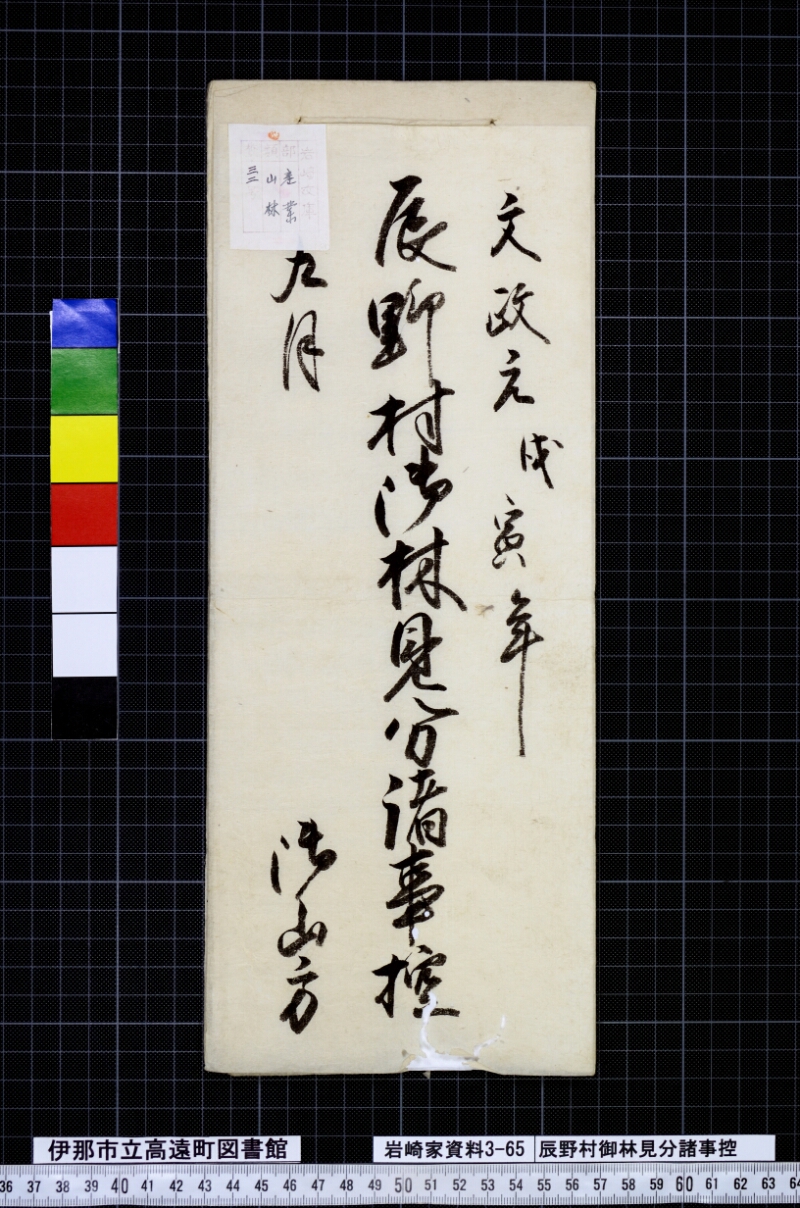 文政元戊寅年
辰野村御林見分諸事控
九月
御山方
産業
山林
三二
伊那市立高遠町図書館
岩崎家資料3-65
辰野村御林見分諸事控
36 37 38 39 40 41 42 43 44 45 46 47 48 49 50 51 52 53 54 55 56 57 58 59 60 61 62 63 64